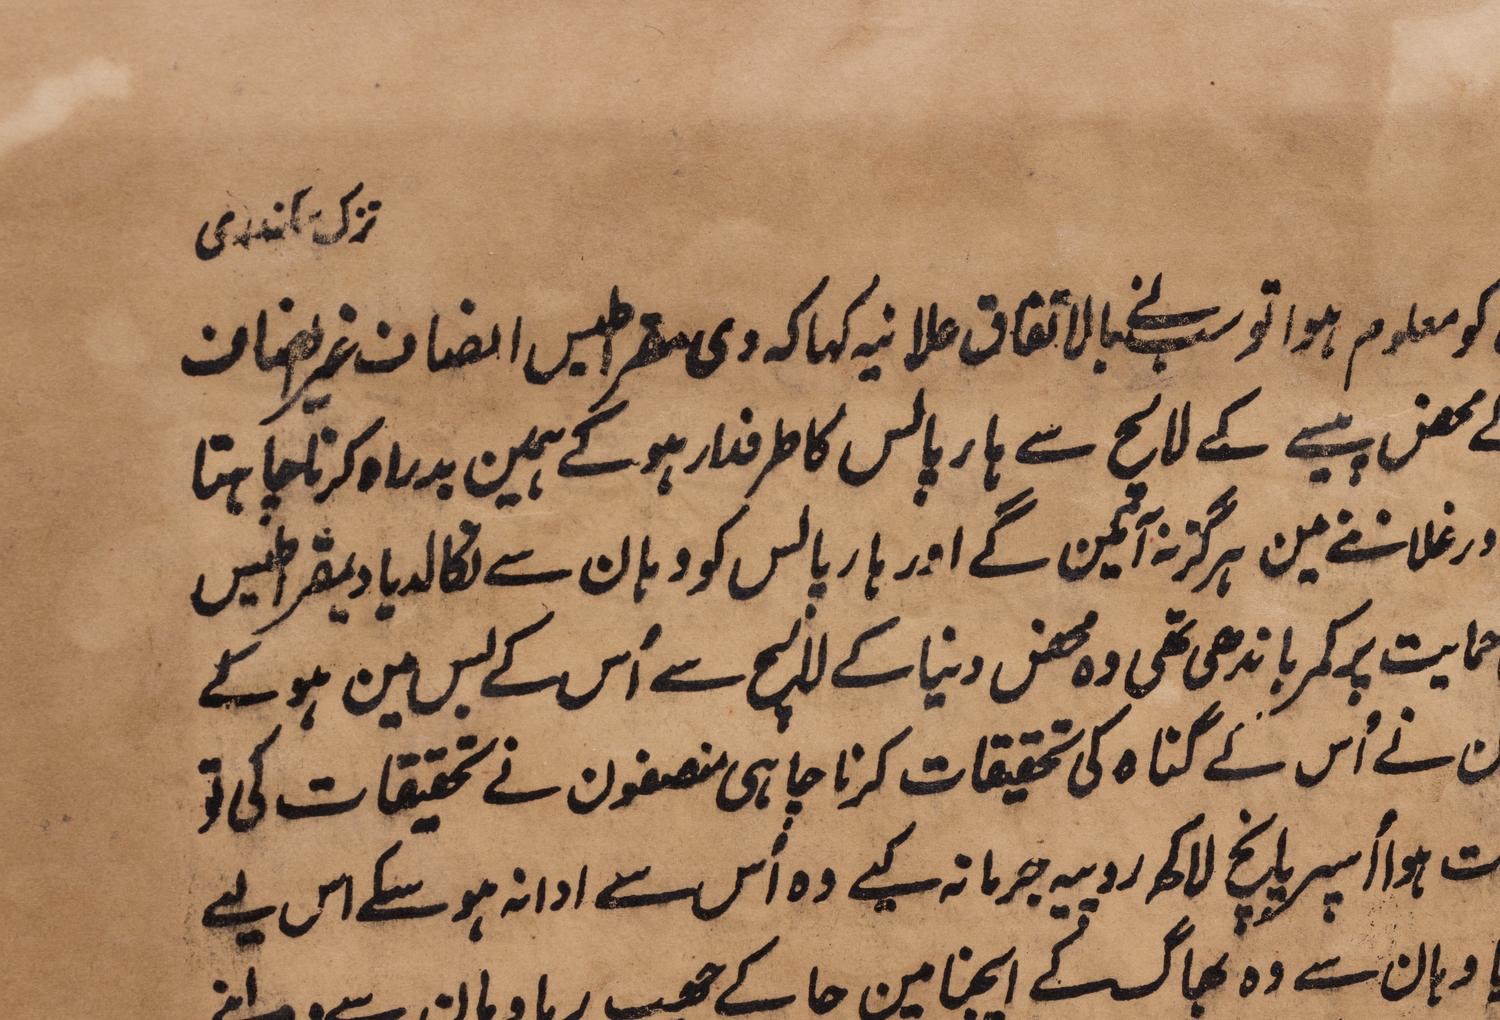 تزک سکندری
کو معلوم ہوا تو سب نے بالاتفاق علانیہ کہا کہ دی مقراطیس انصاف غیر انصاف
کے محض پیسے کے لالچ سے ہارپالس کا طرفدار ہو کے ہمین بدراہ کرنا چاہتا
ورغلانے مین ہرگز نہ آئین گے اور ہارپالس کو وہان سے نکالدیا دیمقراطیس
حمایت پر کمر باندھی تھی وہ محض دنیا کے لالچ سے اُس کے بس مین ہو کے
نے اُس کے گناہ کی تحقیقات کرنا چاہی منصفون نے تحقیقات کی تو
ہوا اُسپر پانچ لاکھ روپیہ جرمانہ کیے وہ اُس سے ادا نہ ہو سکے اس لیے
وہان سے وہ بھاگ کے ایجنا مین جا کے چھپ رہا وہان سے وہ اپنے